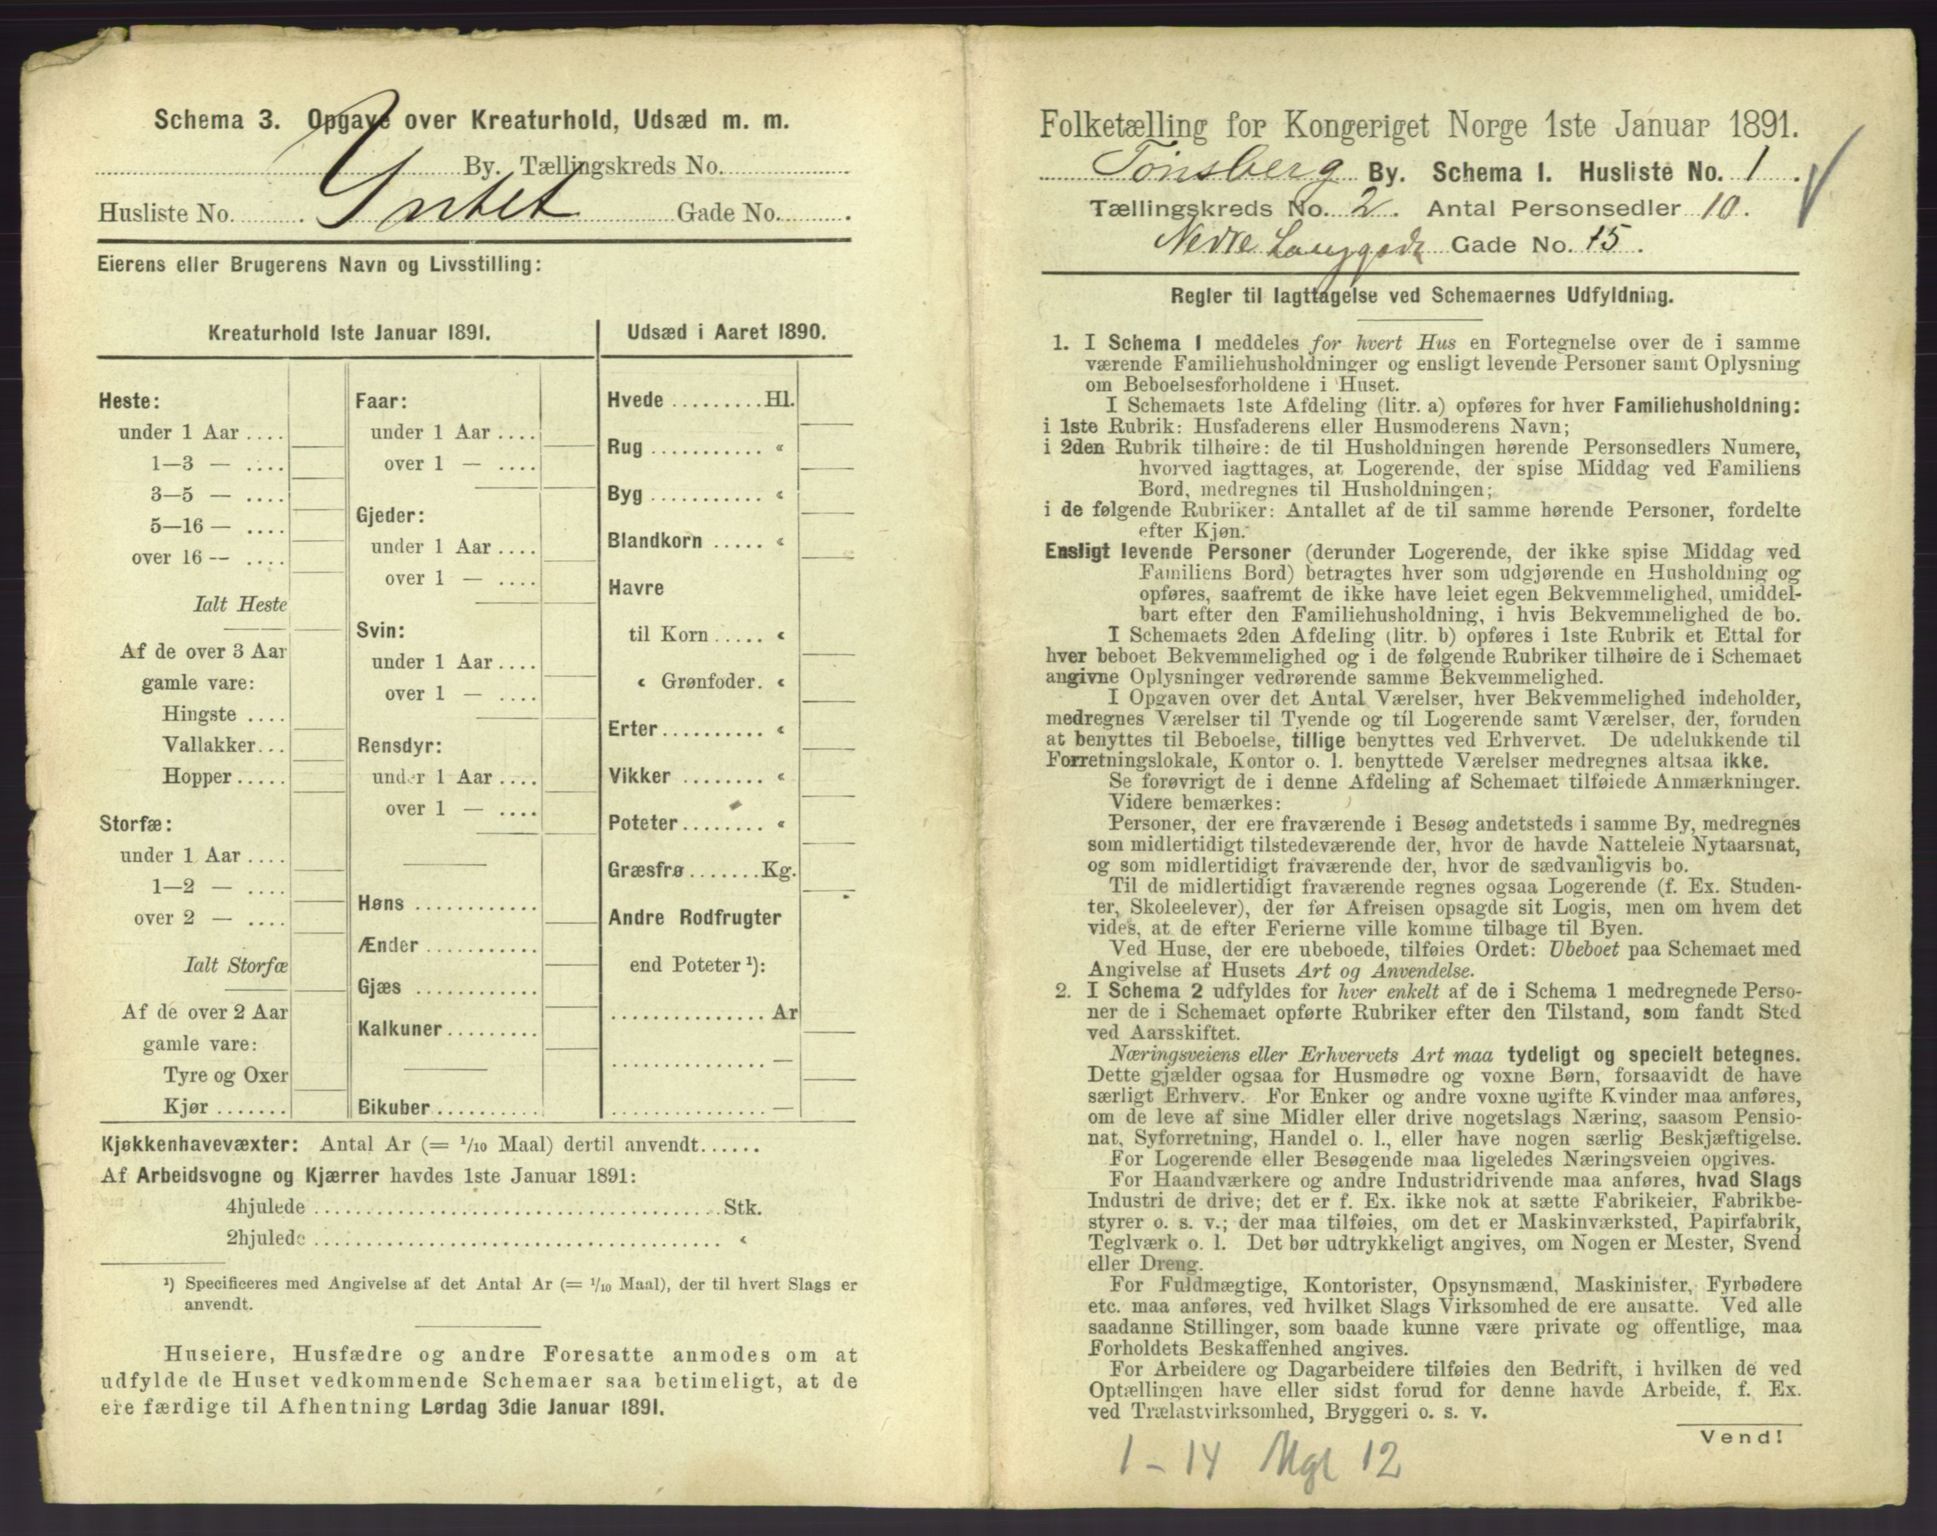 Schema 3. Opgave over Kreaturhold, Udsæd m. m.
By. Tællingskreds No.
Husliste No. Intet Gade No.
Eierens eller Brugerens Navn og Livsstilling:
Kreaturhold 1ste Januar 1891.
Heste:
under 1 Aar ....
1—3 — ....
3—5 — ....
5—16 — ....
over 16 — ....
Ialt Heste
Af de over 3 Aar
gamle vare:
Hingste ....
Vallakker...
Hopper.....
Storfæ:
under 1 Aar ....
1—2 — ....
over 2 — ....
Ialt Storfæ
Af de over 2 Aar
gamle vare:
Tyre og Oxer
Kjør .......
Faar:
under 1 Aar ....
over 1 — ....
Gjeder:
under 1 Aar ....
over 1 — ....
Svin:
under 1 Aar ....
over 1 — ....
Rensdyr:
under 1 Aar ....
over 1 — ....
Høns ............
Ænder ...........
Gjæs ............
Kalkuner.........
Bikuber..........
Udsæd i Aaret 1890.
Hvede .........Hl.
Rug ........... «
Byg ........... «
Blandkorn ..... «
Havre
til Korn ..... «
« Grønfoder. «
Erter.......... «
Vikker ........ «
Poteter........ «
Græsfrø.......Kg.
Andre Rodfrugter
end Poteter ¹):
............... Ar
............... —
............... —
Kjøkkenhavevæxter: Antal Ar (= 1/10 Maal) dertil anvendt......
Af Arbeidsvogne og Kjærrer havdes 1ste Januar 1891:
4hjulede ....................................... Stk.
2hjulede ....................................... «
¹) Specificeres med Angivelse af det Antal Ar (= 1/10 Maal), der til hvert Slags er
anvendt.
Huseiere, Husfædre og andre Foresatte anmodes om at
udfylde de Huset vedkommende Schemaer saa betimeligt, at de
ere færdige til Afhentning Lørdag 3die Januar 1891.
Folketælling for Kongeriget Norge 1ste Januar 1891.
Tønsberg By. Schema I. Husliste No. 1.
Tællingskreds No. 2. Antal Personsedler 10.
Nedre Langgade Gade No. 15.
Regler til Iagttagelse ved Schemaernes Udfyldning.
1. I Schema 1 meddeles for hvert Hus en Fortegnelse over de i samme
værende Familiehusholdninger og ensligt levende Personer samt Oplysning
om Beboelsesforholdene i Huset.
I Schemaets 1ste Afdeling (litr. a) opføres for hver Familiehusholdning:
i 1ste Rubrik: Husfaderens eller Husmoderens Navn;
i 2den Rubrik tilhøire: de til Husholdningen hørende Personsedlers Numere,
hvorved iagttages, at Logerende, der spise Middag ved Familiens
Bord, medregnes til Husholdningen;
i de følgende Rubriker: Antallet af de til samme hørende Personer, fordelte
efter Kjøn.
Ensligt levende Personer (derunder Logerende, der ikke spise Middag ved
Familiens Bord) betragtes hver som udgjørende en Husholdning og
opføres, saafremt de ikke have leiet egen Bekvemmelighed, umiddel-
bart efter den Familiehusholdning, i hvis Bekvemmelighed de bo.
I Schemaets 2den Afdeling (litr. b) opføres i 1ste Rubrik et Ettal for
hver beboet Bekvemmelighed og i de følgende Rubriker tilhøire de i Schemaet
angivne Oplysninger vedrørende samme Bekvemmelighed.
I Opgaven over det Antal Værelser, hver Bekvemmelighed indeholder,
medregnes Værelser til Tyende og til Logerende samt Værelser, der, foruden
at benyttes til Beboelse, tillige benyttes ved Erhvervet. De udelukkende til
Forretningslokale, Kontor o. l. benyttede Værelser medregnes altsaa ikke.
Se forøvrigt de i denne Afdeling af Schemaet tilføiede Anmærkninger.
Videre bemærkes:
Personer, der ere fraværende i Besøg andetsteds i samme By, medregnes
som midlertidigt tilstedeværende der, hvor de havde Natteleie Nytaarsnat,
og som midlertidigt fraværende der, hvor de sædvanligvis bo.
Til de midlertidigt fraværende regnes ogsaa Logerende (f. Ex. Studen-
ter, Skoleelever), der før Afreisen opsagde sit Logis, men om hvem det
vides, at de efter Ferierne ville komme tilbage til Byen.
Ved Huse, der ere ubeboede, tilføies Ordet: Ubeboet paa Schemaet med
Angivelse af Husets Art og Anvendelse.
2. I Schema 2 udfyldes for hver enkelt af de i Schema 1 medregnede Perso-
ner de i Schemaet opførte Rubriker efter den Tilstand, som fandt Sted
ved Aarsskiftet.
Næringsveiens eller Erhvervets Art maa tydeligt og specielt betegnes.
Dette gjælder ogsaa for Husmødre og voxne Børn, forsaavidt de have
særligt Erhverv. For Enker og andre voxne ugifte Kvinder maa anføres,
om de leve af sine Midler eller drive nogetslags Næring, saasom Pensio-
nat, Syforretning, Handel o. l., eller have nogen særlig Beskjæftigelse.
For Logerende eller Besøgende maa ligeledes Næringsveien opgives.
For Haandværkere og andre Industridrivende maa anføres, hvad Slags
Industri de drive; det er f. Ex. ikke nok at sætte Fabrikeier, Fabrikbe-
styrer o. s. v.; der maa tilføies, om det er Maskinværksted, Papirfabrik,
Teglværk o. l. Det bør udtrykkeligt angives, om Nogen er Mester, Svend
eller Dreng.
For Fuldmægtige, Kontorister, Opsynsmænd, Maskinister, Fyrbødere
etc. maa anføres, ved hvilket Slags Virksomhed de ere ansatte. Ved alle
saadanne Stillinger, som baade kunne være private og offentlige, maa
Forholdets Beskaffenhed angives.
For Arbeidere og Dagarbeidere tilføies den Bedrift, i hvilken de ved
Optællingen have eller sidst forud for denne havde Arbeide, f. Ex.
ved Trælastvirksomhed, Bryggeri o. s. v.
Vend!
1 - 14 Mgl 12